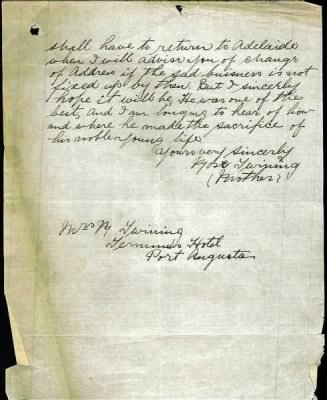 shall have to return to Adelaide
when I will advise you of change
of Address if the sad buisness is not
fixed up by then. But I sincerly
hope it will be. He was one of the
best, and I am longing to hear of how
and where he made the sacrifice of
his noble young life
Yours very sincerly
Twining
(Mother)
Mrs M Twining
Terminus Hotel
Port Augusta